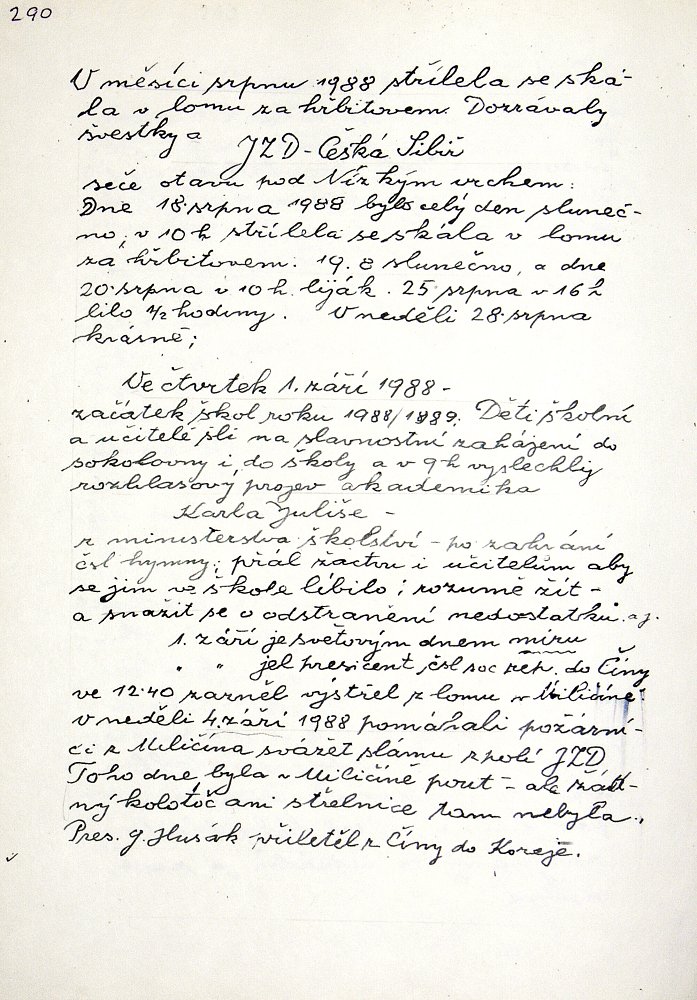 290
V měsíci srpnu 1988 střílela se ská-
la v lomu za hřbitovem. Dozrávaly
švestky a
JZD - Česká Sibiř
seče otavu pod Nízkým vrchem.
Dne 18. srpna 1988 bylo celý den sluneč-
no, v 10 h střílela se skála v lomu
za hřbitovem. 19. 8 slunečno, a dne
20. srpna v 10 h. liják. 25 srpna v 16 h
lilo 1/2 hodiny. V neděli 28. srpna
krásně;
Ve čtvrtek 1. září 1988 -
začátek škol roku 1988/1989. Děti školní
a učitelé šli na slavnostní zahájení do
sokolovny i do školy a v 9 h vyslechly
rozhlasový projev akademika
Karla Juliše -
z ministerstva školství - po zahrání
čsl hymny; přál žactvu i učitelům aby
se jim ve škole líbilo; rozumě žít -
a snažit se o odstranění nedostatků. a j.
1. září je světovým dnem míru
" " jel president čsl soc rep. do Číny
ve 12.40 zazněl výstřel z lomu v Miličíně.
v neděli 4. září 1988 pomáhali požární-
ci z Miličína svážet slámu z polí JZD
Toho dne byla v Miličíně pout - ale žád-
ný kolotoč ani střelnice tam nebyla.
Pres. G. Husák přiletěl z Číny do Koreje.